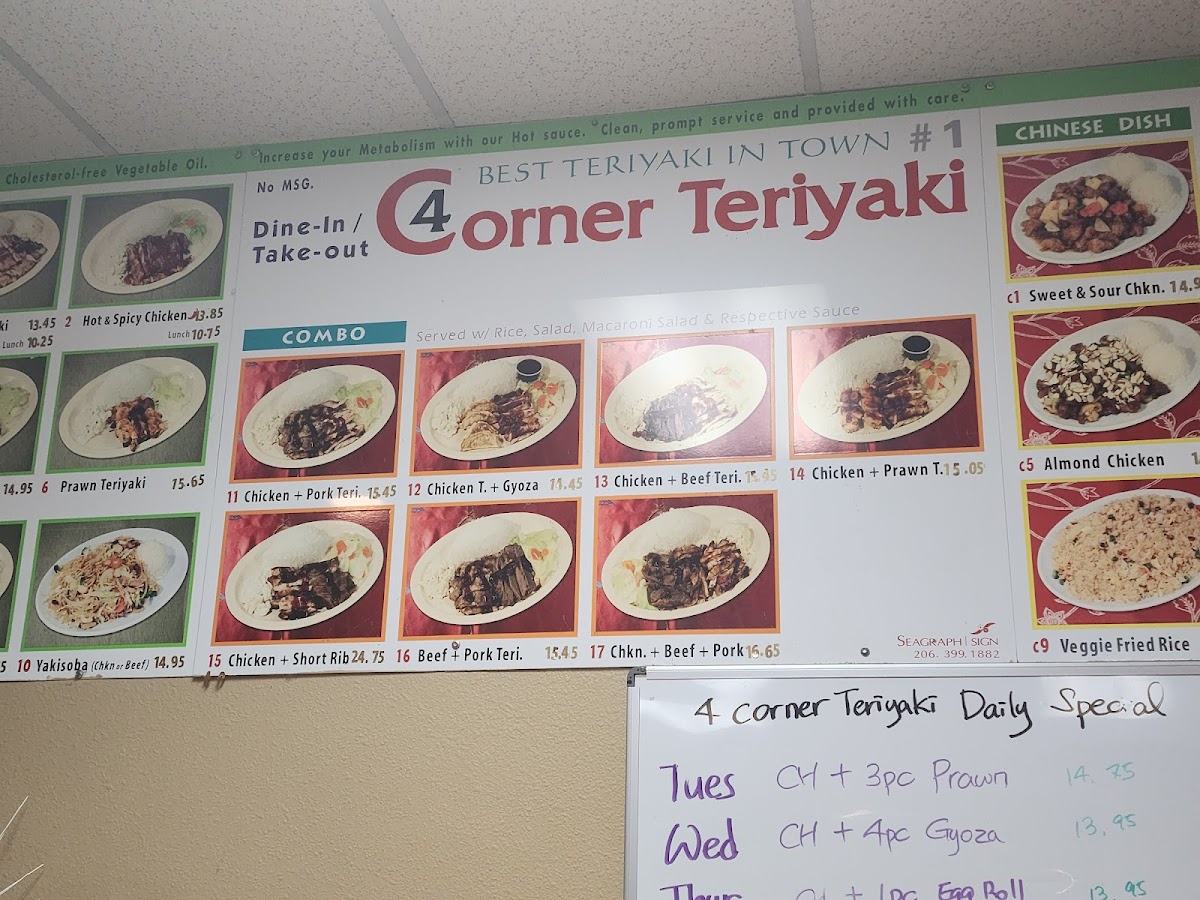 Cholesterol-free Vegetable Oil.
Increase your Metabolism with our Hot sauce. Clean, prompt service and provided with care.
No MSG.
Dine-In /
Take-out
BEST TERIYAKI IN TOWN #1
4 Corner Teriyaki
CHINESE DISH
13.45
Lunch 10.25
2 Hot & Spicy Chicken 13.85
Lunch 10.75
14.95
6 Prawn Teriyaki 15.65
10 Yakisoba (Chkn or Beef) 14.95
COMBO
Served w/ Rice, Salad, Macaroni Salad & Respective Sauce
11 Chicken + Pork Teri. 15.45
12 Chicken T. + Gyoza
13 Chicken + Beef Teri.
14 Chicken + Prawn T. 15.05
15 Chicken + Short Rib 24.75
16 Beef + Pork Teri. 15.45
17 Chkn. + Beef + Pork 16.65
c1 Sweet & Sour Chkn.
c5 Almond Chicken
c9 Veggie Fried Rice
SEAGRAPH SIGN
206. 399. 1882
4 corner Teriyaki Daily Special
Tues CH + 3pc Prawn 14.75
Wed CH + 4pc Gyoza 13.95
Thur CH + 1pc Egg Roll 13.95